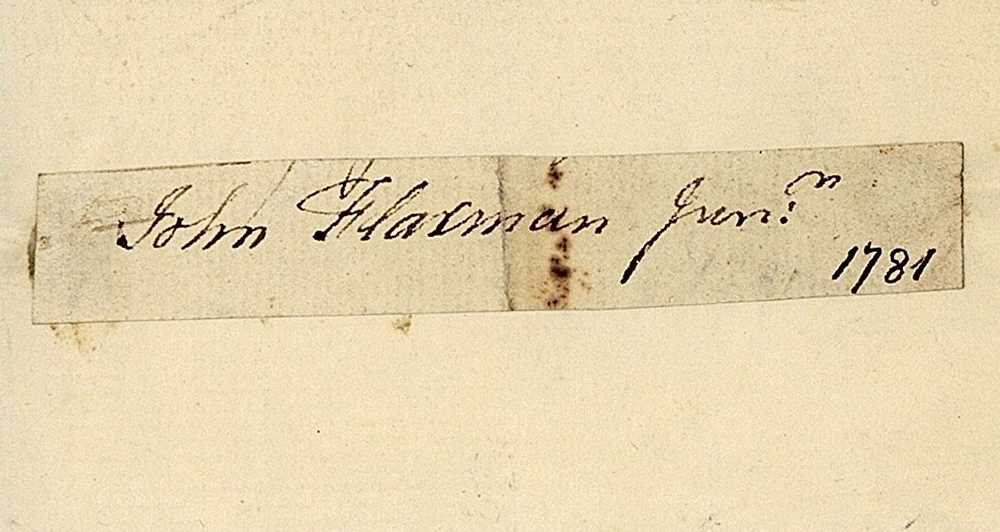 John Flaxman Junr.
1781